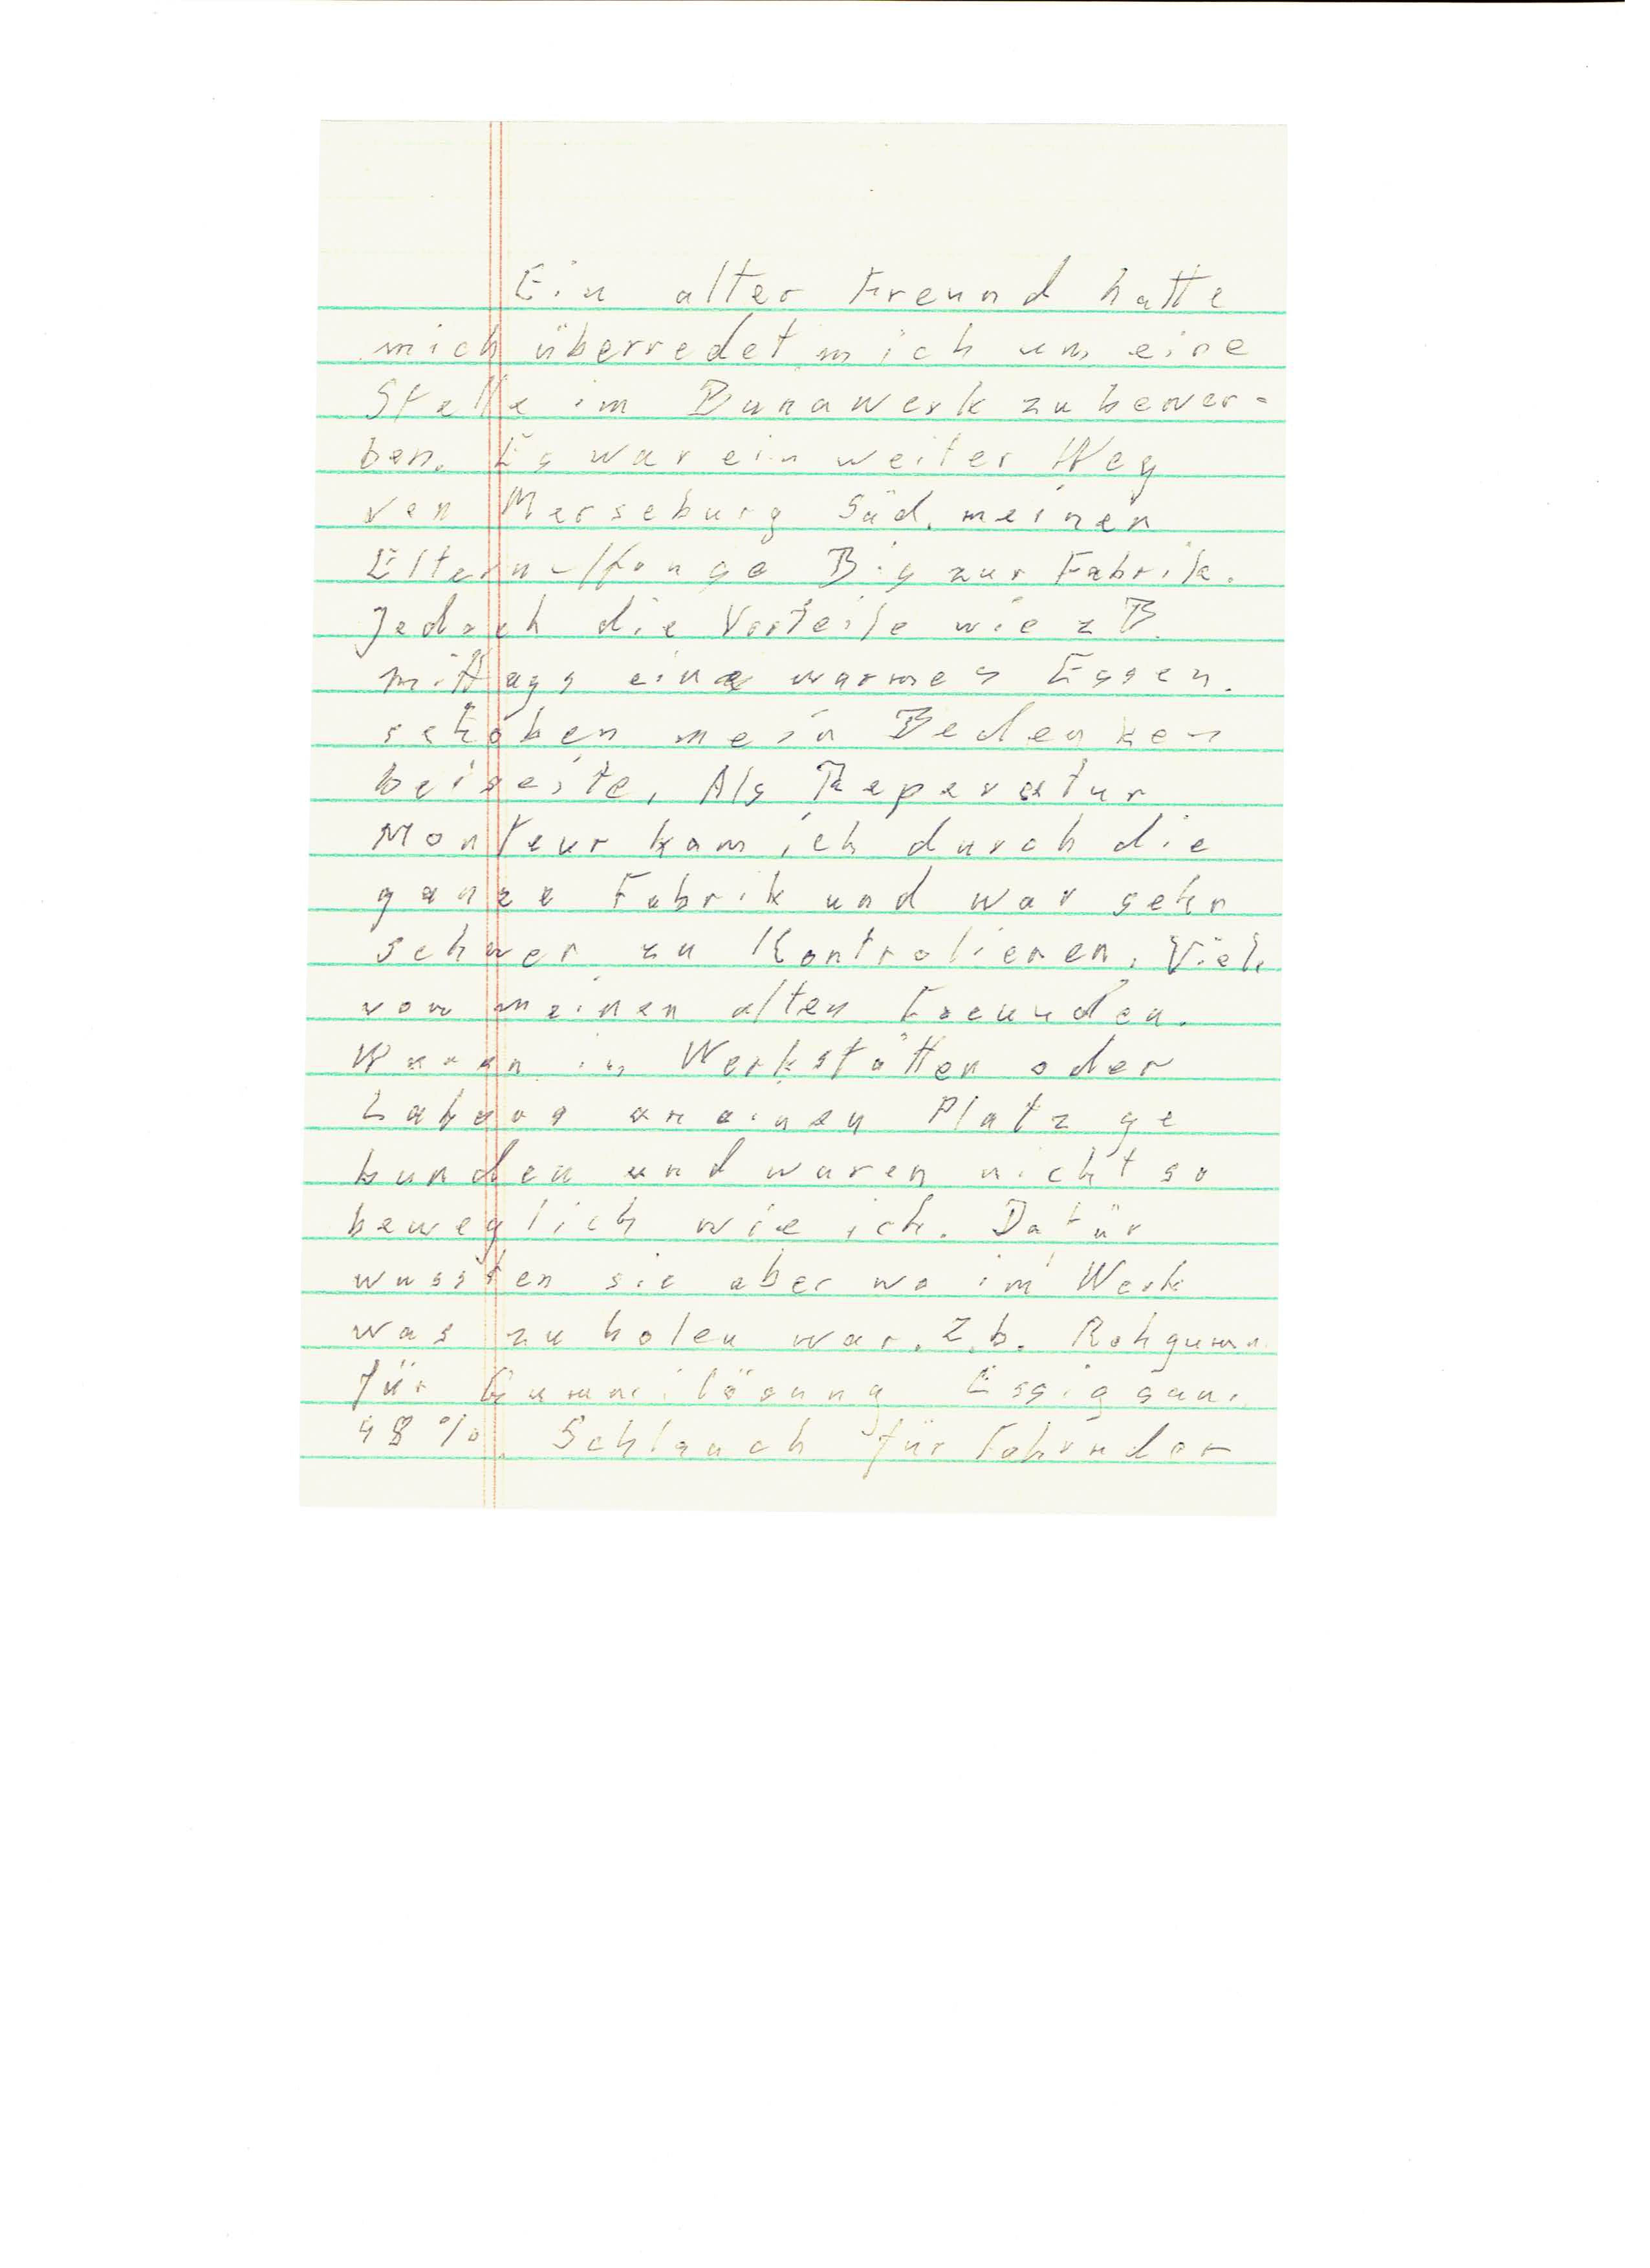 Ein alter Freund hatte
mich überredet mich um eine
Stelle im Bunawerk zu bewer-
ben. Es war ein weiter Weg
von Merseburg Süd. meinen
Eltern-Hause Bis zur Fabrik.
Jedoch die Vorteile wie z B.
mittags eine warmes Essen.
schoben mein Bedenken
beiseite. Als Reperatur
Monteur kam ich durch die
ganze Fabrik und war sehr
schwer zu Kontrolieren. Viele
von meinen alten Freunden.
Waren in Werkstätten oder
Labors an einen Platz ge
bunden und waren nicht so
beweglich wie ich. Dafür
wussten sie aber wo im Werk
was zu holen war. Z.b. Rohgummi
für Gummilösung Essigsäure
98%. Schlauch für Fahrräder